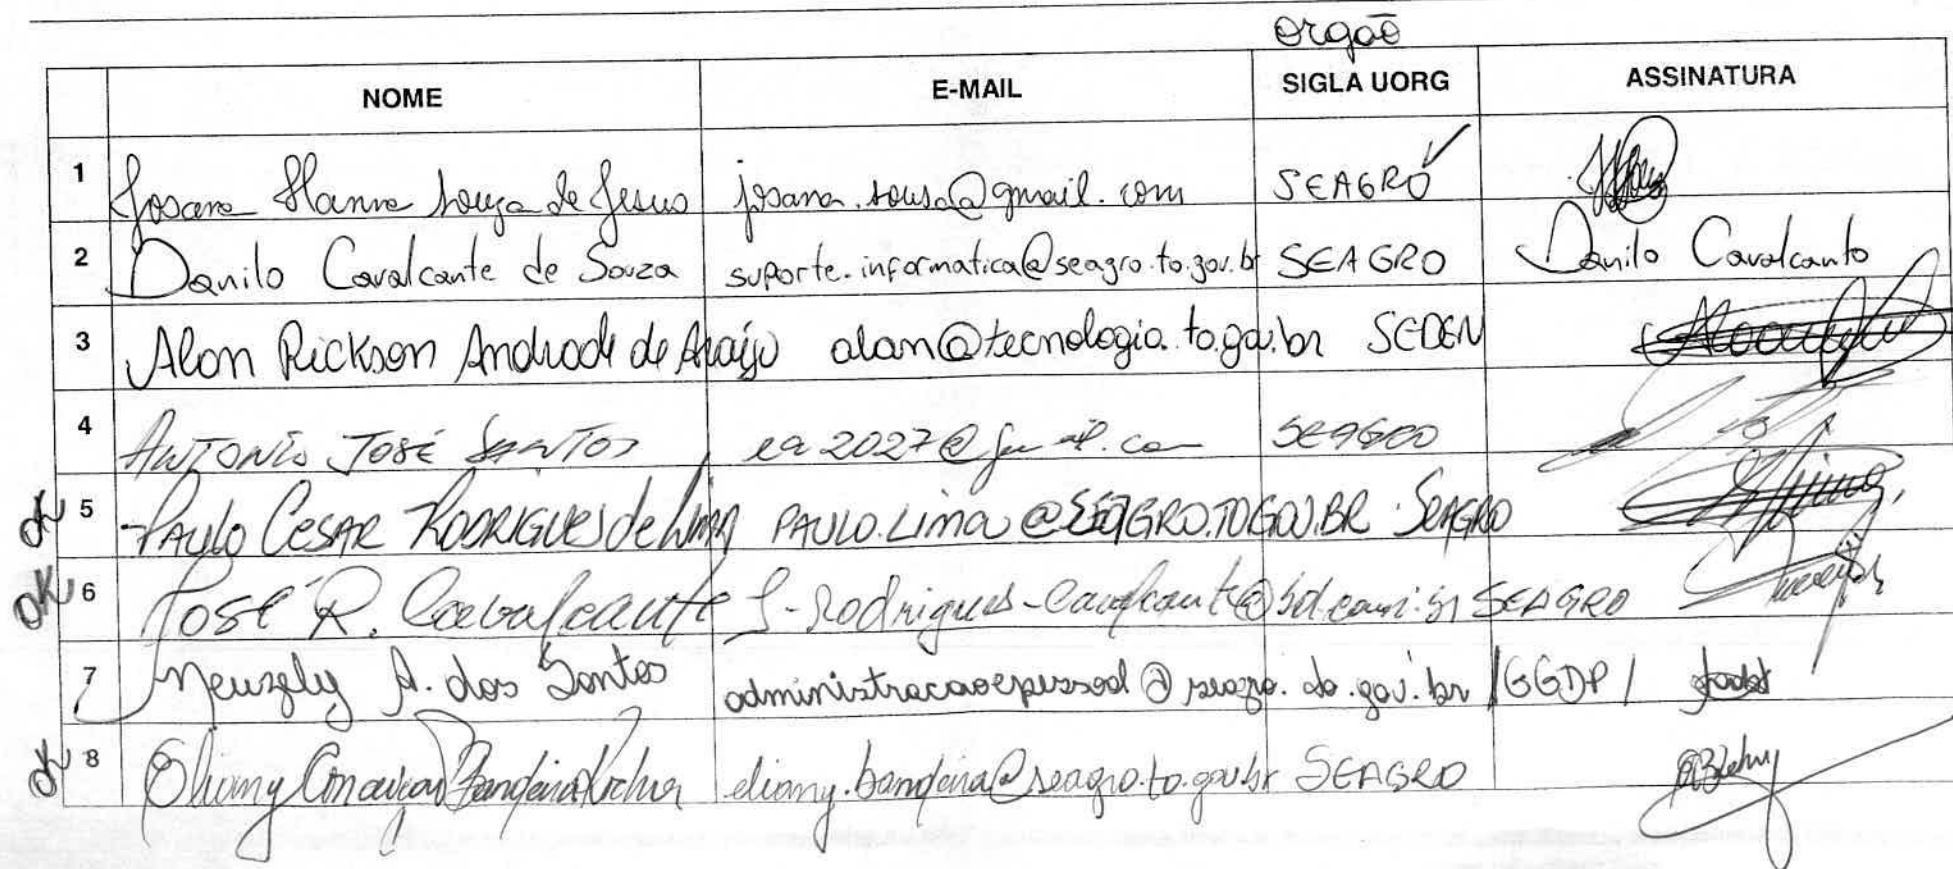 orgão
NOME E-MAIL SIGLA UORG ASSINATURA
1 Josana Hanna Souza de Jesus josana.sousa@gmail.com SEAGRO
2 Danilo Cavalcante de Souza suporte.informatica@seagro.to.gov.br SEAGRO Danilo Cavalcante
3 Alan Rickson Andrade de Araújo alan@tecnologia.to.gov.br SEDEN
4 ANTONIO JOSÉ SANTOS SEAGRO
OK 5 PAULO CESAR RODRIGUES de LIMA PAULO.LIMA@SEAGRO.TO.GOV.BR SEAGRO
OK 6 José R. Cavalcante SEAGRO
7 Neuzely A. dos Santos administracaoepessoal@seagro.to.gov.br /GGDP/
OK 8 Bandeira eliany.bandeira@seagro.to.gov.br SEAGRO